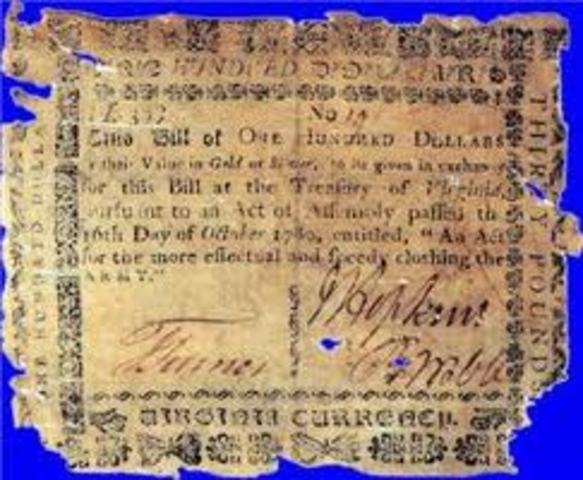 ONE HUNDRED DOLLARS
No
This Bill of ONE HUNDRED DOLLARS
their Value in Gold or Silver, to be given in exchange
for this Bill at the Treasury of Virginia,
pursuant to an Act of Assembly passed the
16th Day of October 1780, entitled, "An Act
for the more effectual and speedy clothing the
ARMY."
J Hopkins
Turner
VIRGINIA CURRENCY.
ONE HUNDRED DOLLA
THIRTY POUNDS